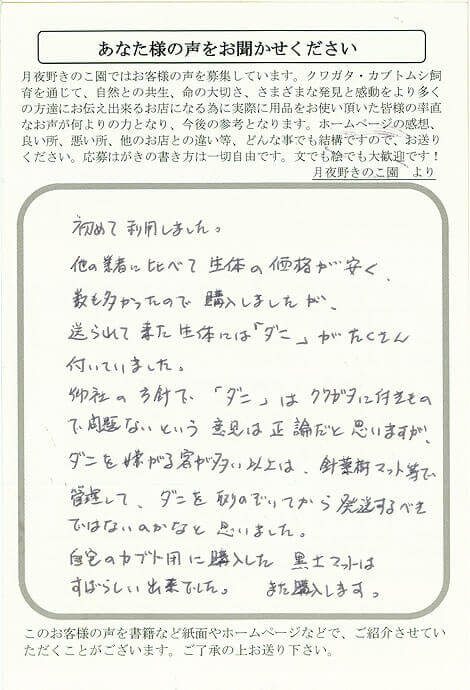 あなた様の声をお聞かせください
月夜野きのこ園ではお客様の声を募集しています。クワガタ・カブトムシ飼
育を通じて、自然との共生、命の大切さ、さまざまな発見と感動をより多く
の方達にお伝え出来るお店になる為に実際に用品をお使い頂いた皆様の率直
なお声が何よりの力となり、今後の参考となります。ホームページの感想、
良い所、悪い所、他のお店との違い等、どんな事でも結構ですので、お送り
ください。応募はがきの書き方は一切自由です。文でも絵でも大歓迎です！
月夜野きのこ園　より
初めて利用しました。
他の業者に比べて生体の価格が安く、
数も多かったので購入しましたが、
送られて来た生体には「ダニ」がたくさん
付いていました。
御社の方針で、「ダニ」はクワガタに付きもの
で問題ないという意見は正論だと思いますが、
ダニを嫌がる客が多い以上は、針葉樹マット等で
管理して、ダニを取りのぞいてから発送するべき
ではないのかなと思いました。
自宅のカブト用に購入した黒土マットは
すばらしい出来でした。また購入します。
このお客様の声を書籍など紙面やホームページなどで、ご紹介させてい
ただくことがございます。ご了承の上お送り下さい。